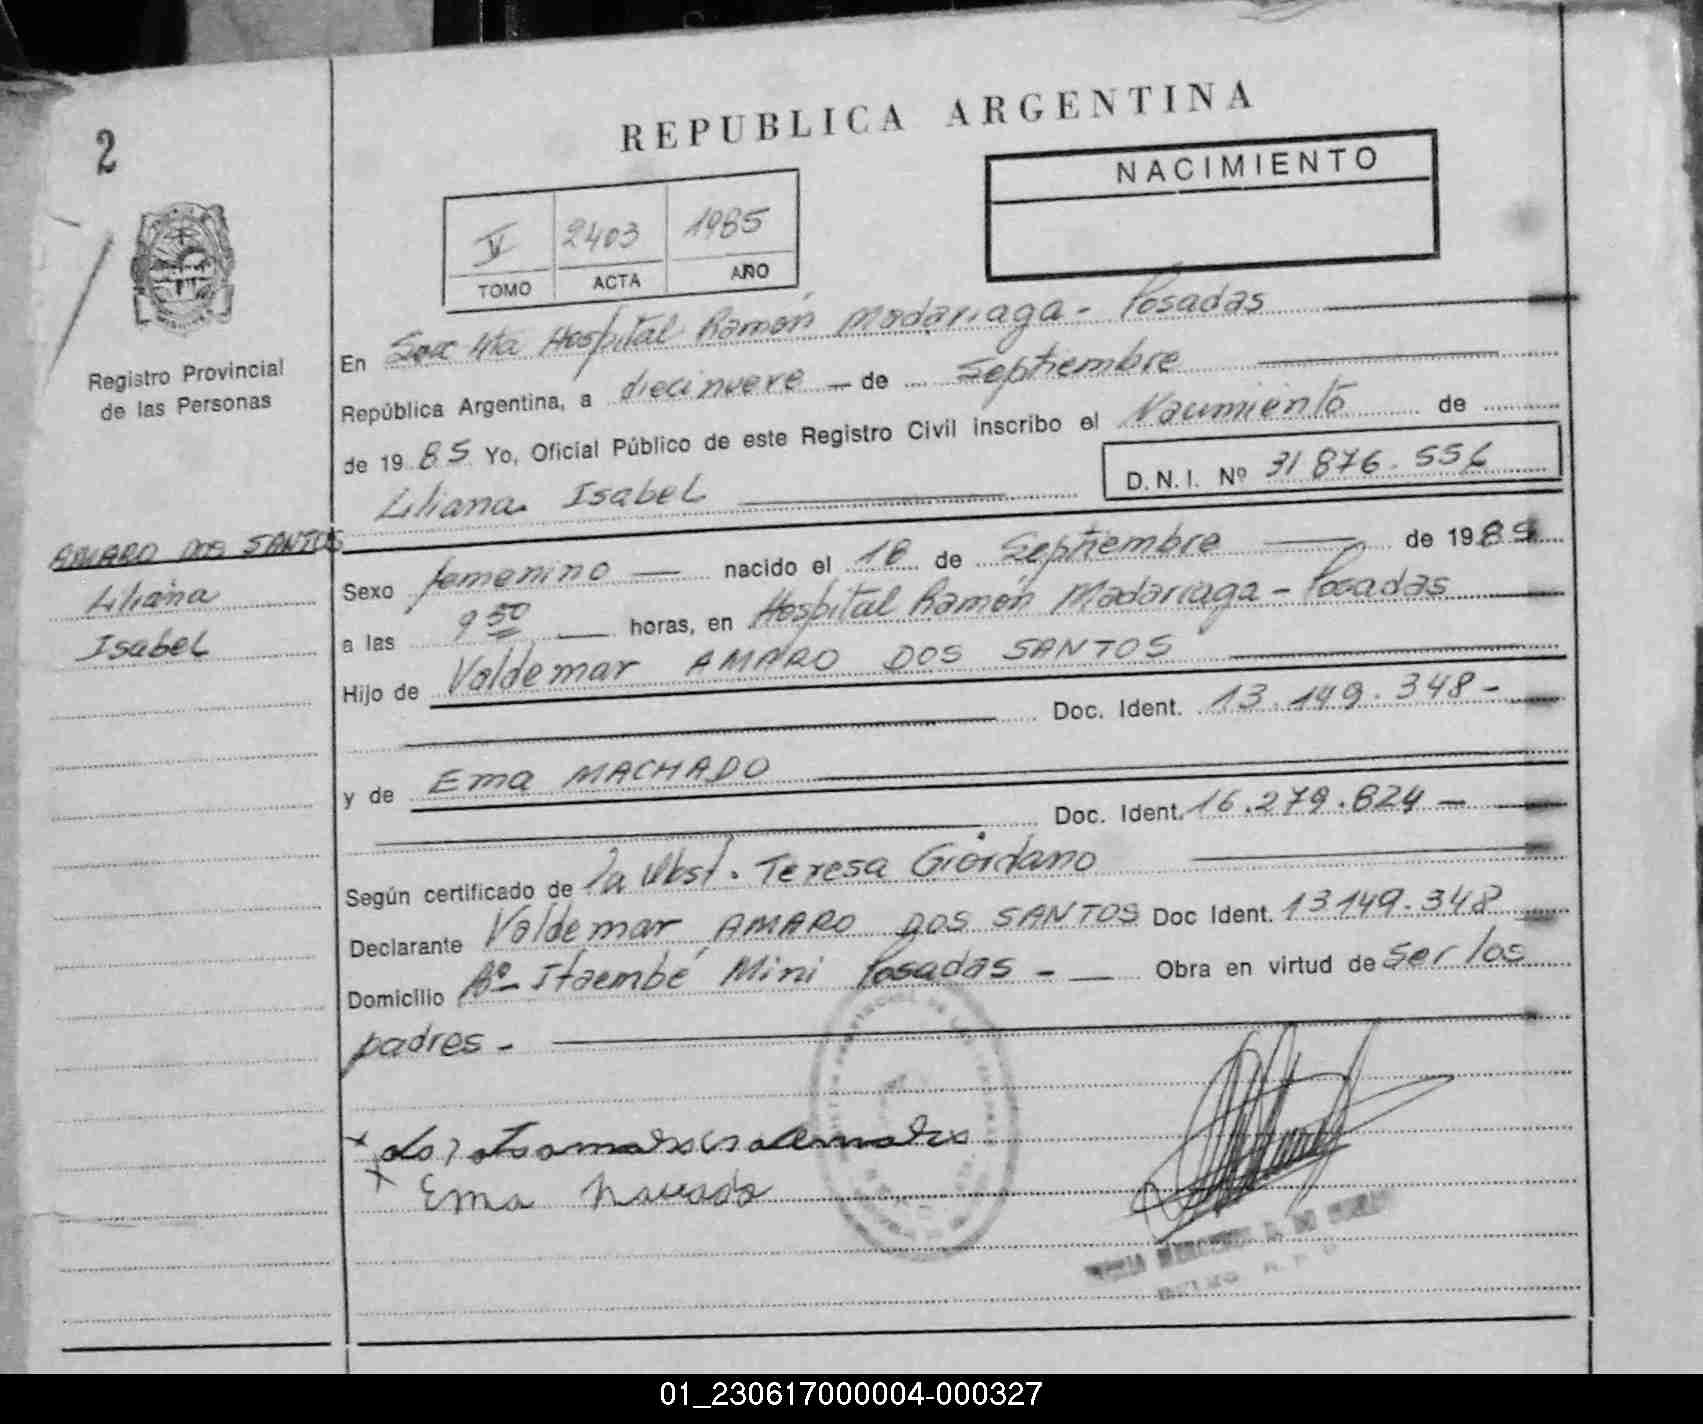 2
REPUBLICA ARGENTINA
NACIMIENTO
V 2403 1985
TOMO ACTA AÑO
Registro Provincial
de las Personas
En Secc 4ta Hospital Ramón Madariaga - Posadas
República Argentina, a diecinueve — de Septiembre
de 1985 Yo, Oficial Público de este Registro Civil inscribo el Nacimiento de
Liliana Isabel D.N.I. Nº 31 876.556
AMARO DOS SANTOS
Liliana
Isabel
Sexo femenino — nacido el 18 de Septiembre — de 1985
a las 9 50 — horas, en Hospital Ramón Madariaga - Posadas
Hijo de Valdemar AMARO DOS SANTOS
Doc. Ident. 13.149.348 -
y de Ema MACHADO
Doc. Ident. 16.279.824 —
Según certificado de la Obst. Teresa Giordano
Declarante Valdemar AMARO DOS SANTOS Doc Ident. 13149.348
Domicilio Bº Itaembé Mini Posadas - — Obra en virtud de ser los
padres -
Ema
01_230617000004-000327